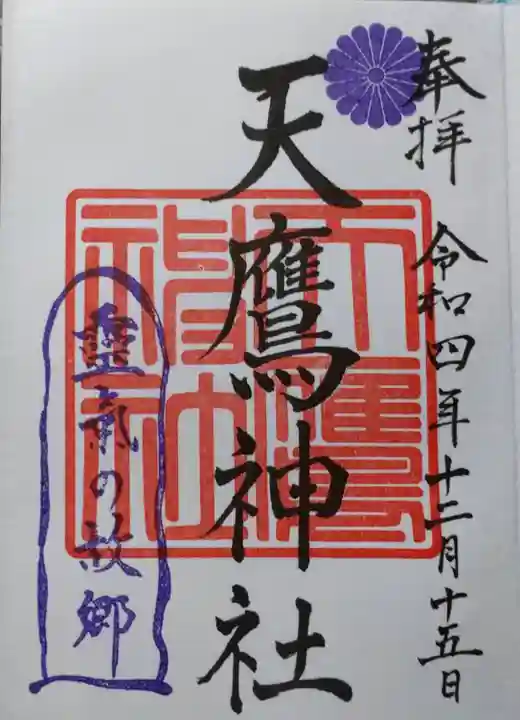 奉拝 令和四年十二月十五日
天鷹神社
天鷹神社
霊気の故郷